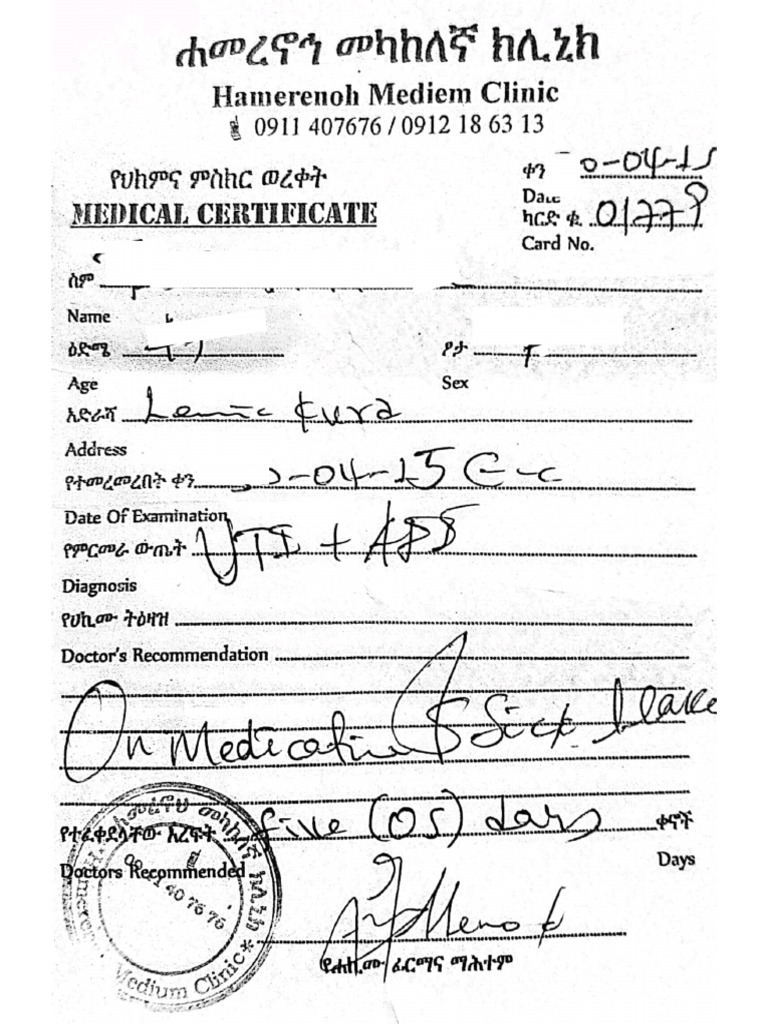 ሐመረኖኅ መካከለኛ ክሊኒክ
Hamerenoh Mediem Clinic
0911 407676 / 0912 18 63 13
የህክምና ምስክር ወረቀት
MEDICAL CERTIFICATE
ቀን 0-04-15
Date
ካርድ ቁ. 01779
Card No.
ስም
Name
ዕድሜ
Age
ፆታ
Sex
አድራሻ Lemi Kura
Address
የተመረመረበት ቀን -04-15 E-C
Date Of Examination
የምርመራ ውጤት UTI +
Diagnosis
የሀኪሙ ትዕዛዝ
Doctor's Recommendation
On Medication & Sick leave
የተፈቀደላቸው እረፍት five (05) days ቀኖች
Doctors Recommended Days
የሐኪሙ ፊርማና ማሕተም
ሐመረኖህ መካከለኛ ክሊኒክ
0911 40 76 76
Medium Clinic